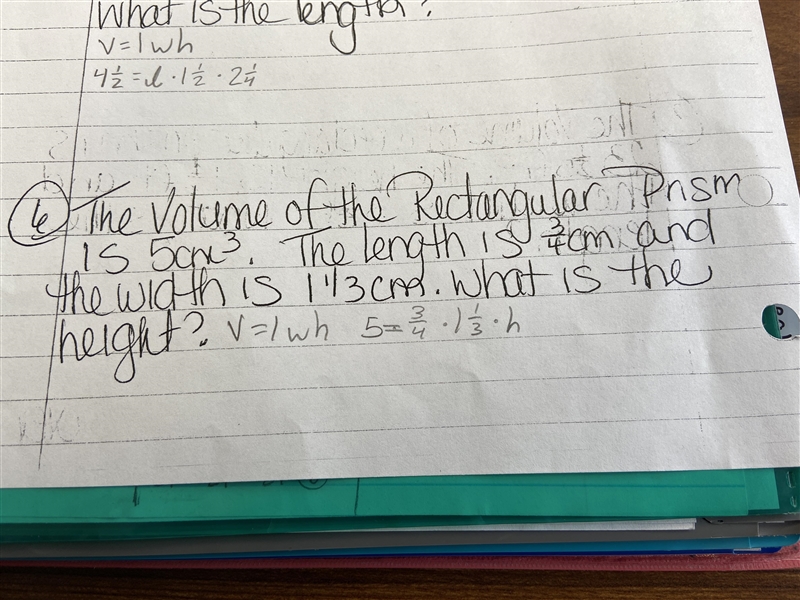 What is the length?
V = lwh
4 1/2 = l · 1 1/2 · 2 1/4
6 The Volume of the Rectangular Prism
is 5cm³. The length is 3/4cm and
the width is 1 1/3 cm. What is the
height? V = lwh 5 = 3/4 · 1 1/3 · h